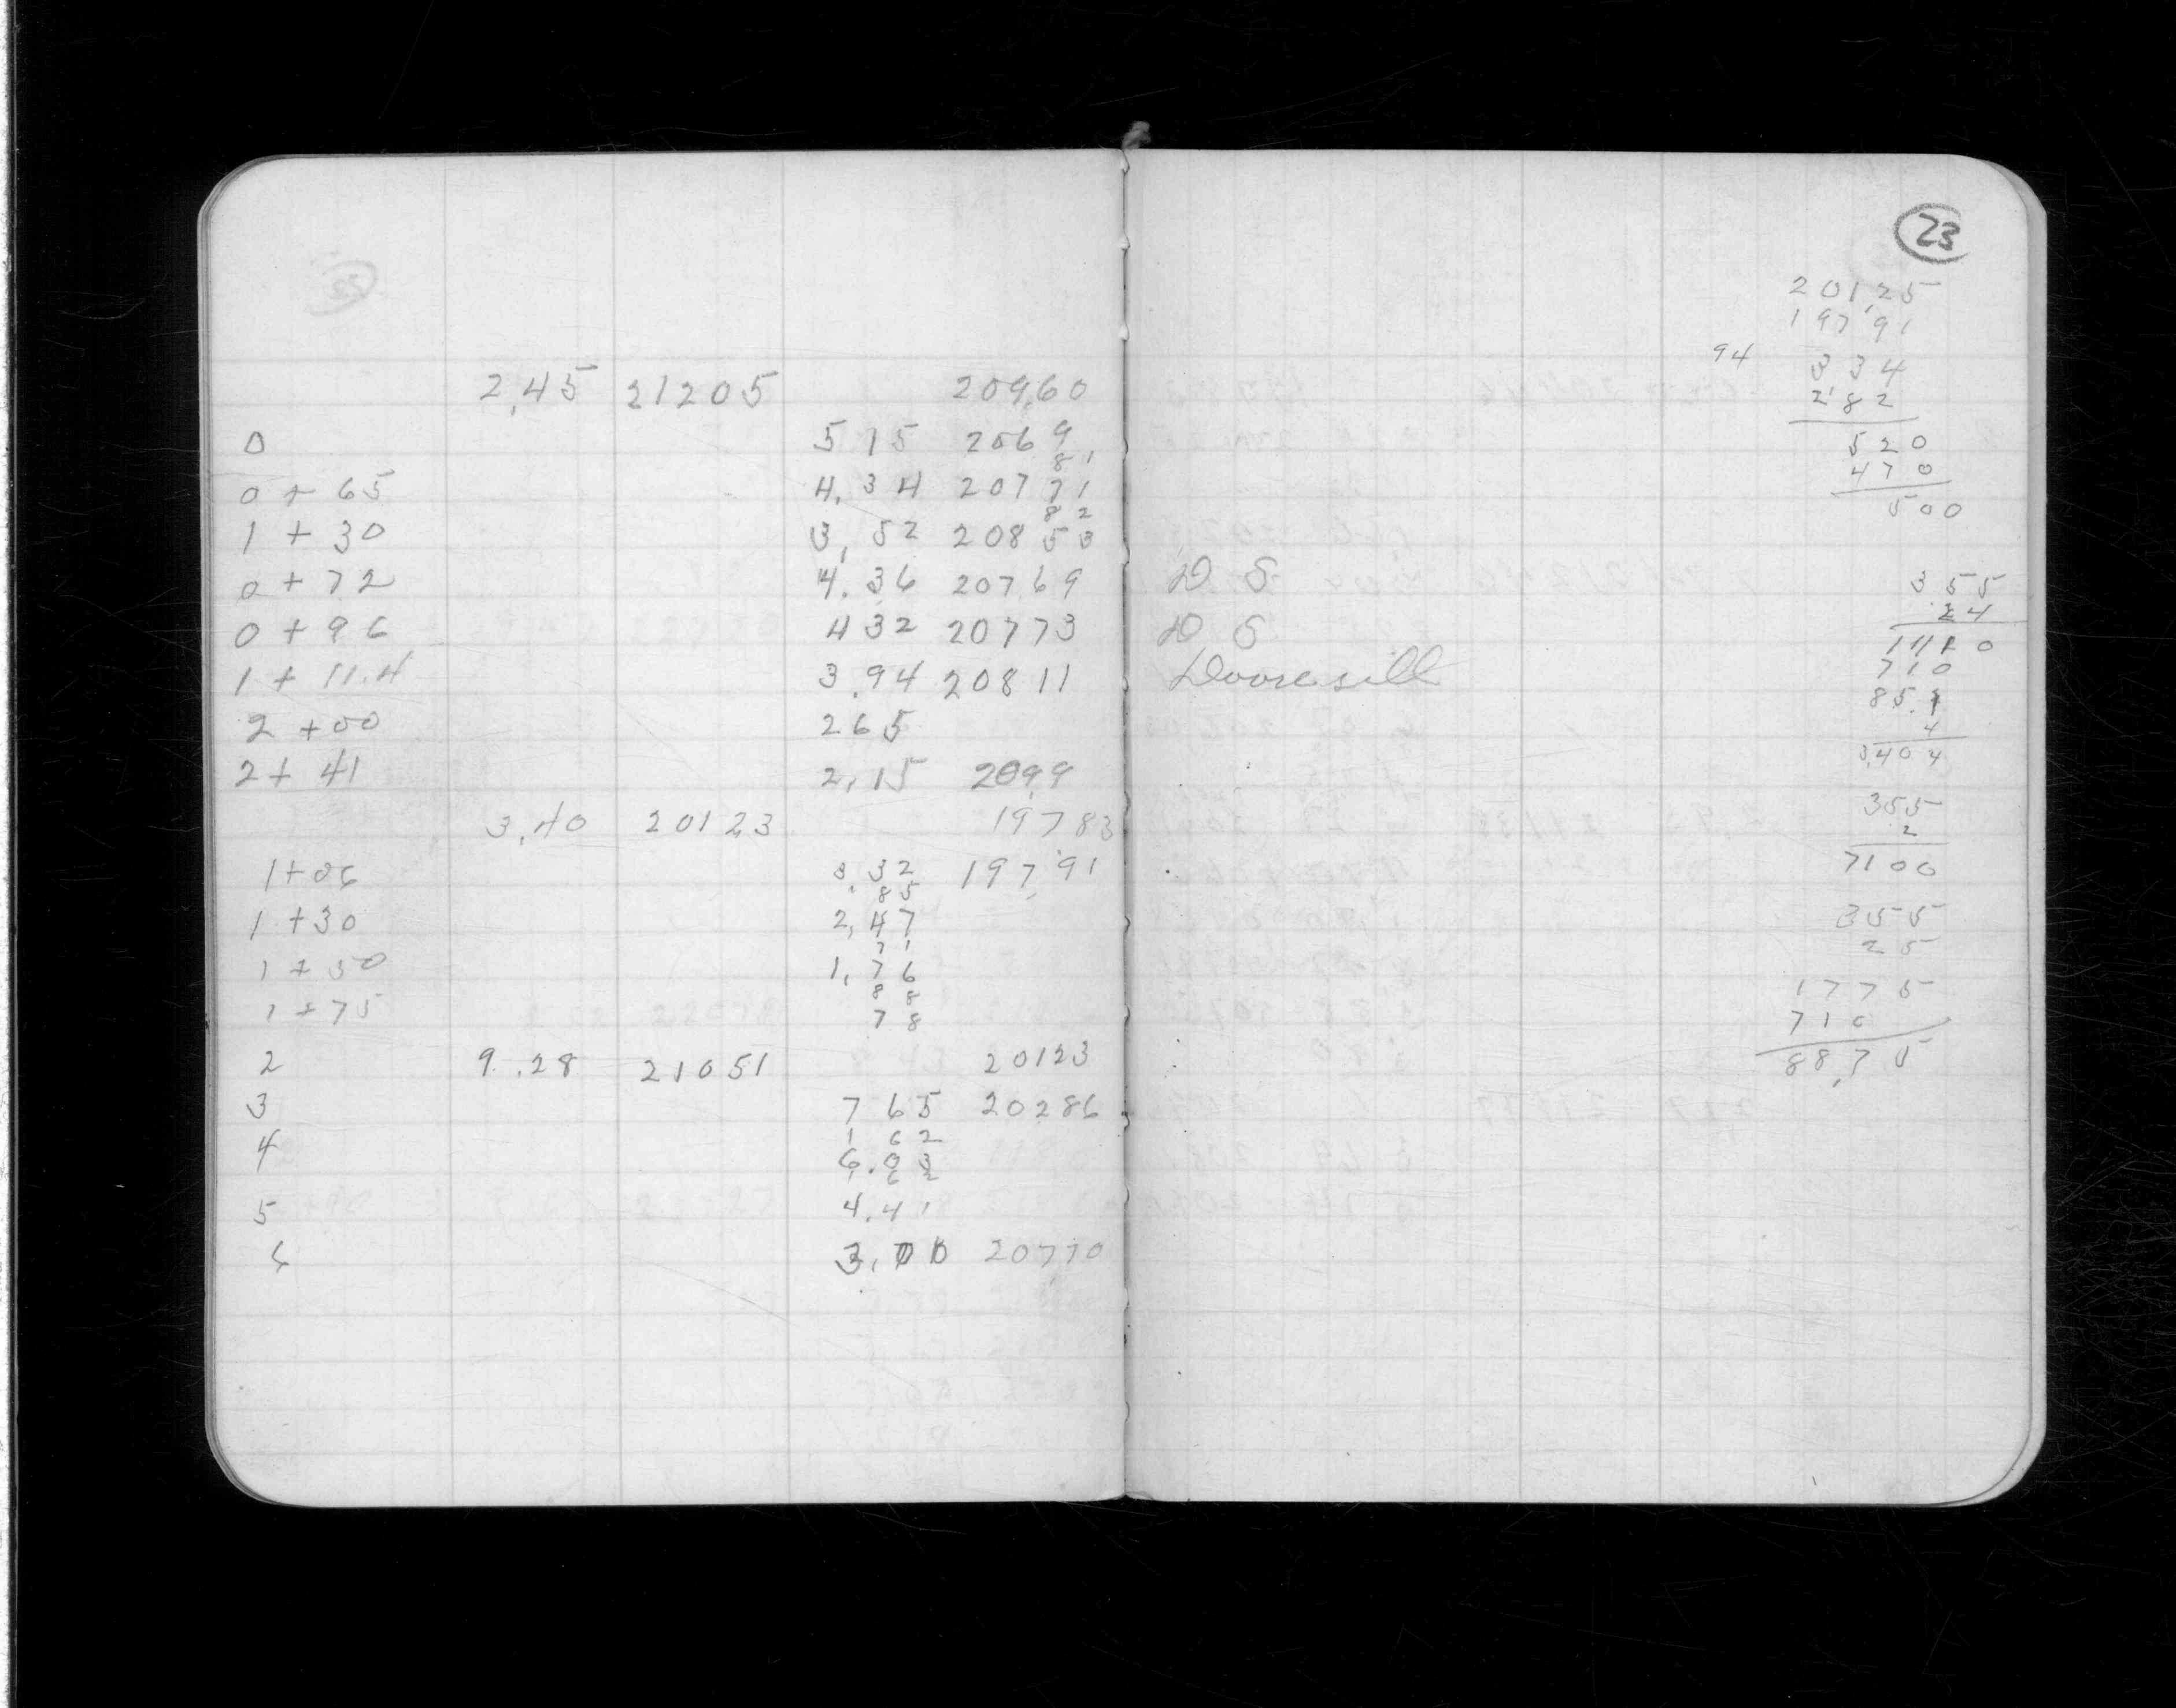 2.45 21205 209.60
0 515 2069
81
0 + 65 4.34 20771
82
1 + 30 3.52 20853
0 + 72 4.36 20769
0 + 96 432 20773
1 + 11.4 3.94 20811
2 + 00 265
2 + 41 2.15 209.9
3.40 20123 19783
1+06 3.32 197.91
85
1 +30 2.47
71
1 + 50 1.76
88
1 + 75 78
2 9.28 21051 20123
3 7 65 20286
1 62
4 6.03
62
5 4.41
6 20770
23
201.25
197.91
94 334
282
520
470
500
D S
D S
Doorsill
355
24
710
85.
4
3,404
355
2
7100
355
25
1775
710
88.75